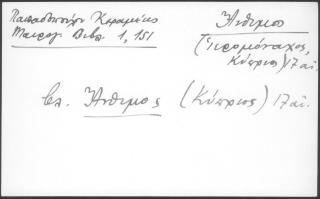 Παπαδόπουλου Κεραμέως
Μαυρογ. Βιβλ. 1, 151
Ἄνθιμος
(Ἱερομόναχος,
Κύπριος) 17 αἰ.
βλ. Ἄνθιμος (Κύπριος) 17 αἰ.